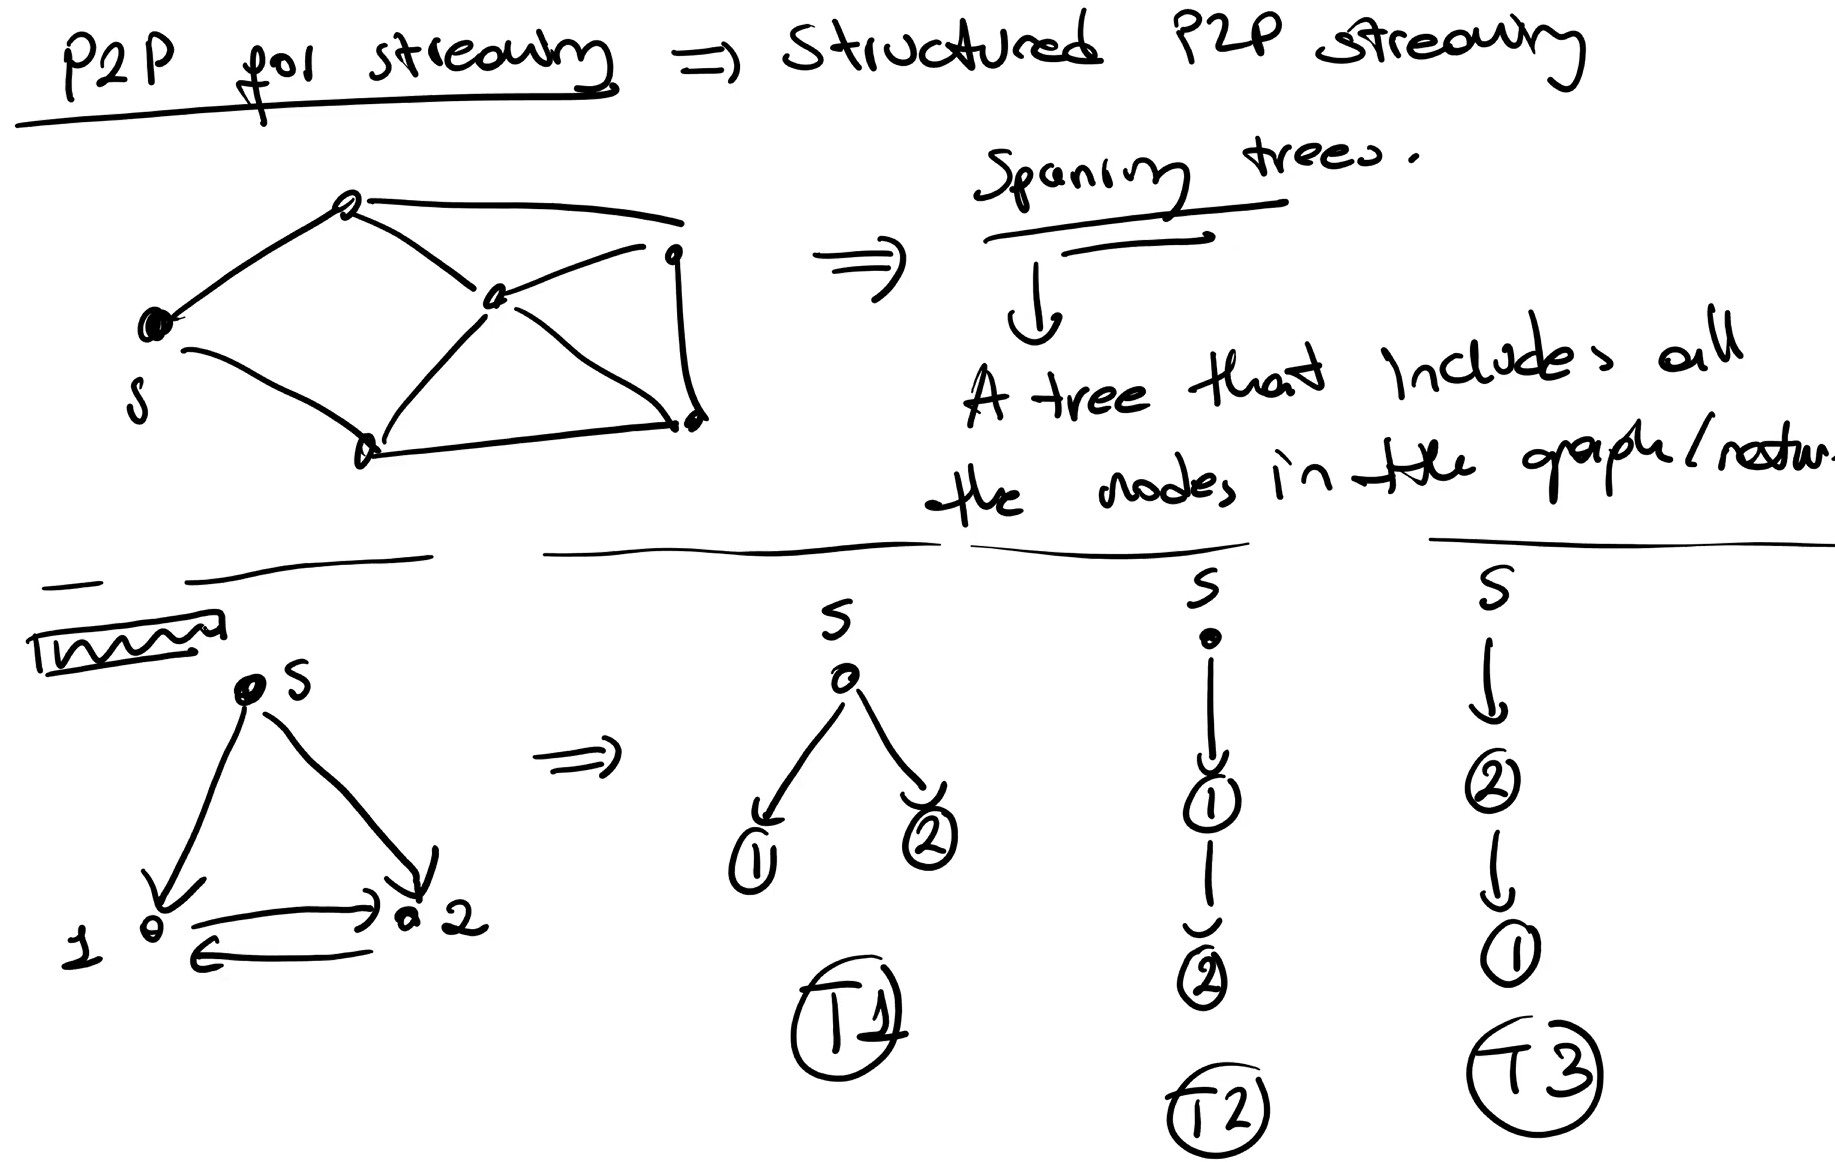 P2P for streaming ⇒ Structured P2P streaming
Spaning trees.
⇒
↓
S
A tree that includes all
the nodes in the graph/networ
S
S
S
S
⇒
1
2
1
2
1
2
2
1
T1
T2
T3